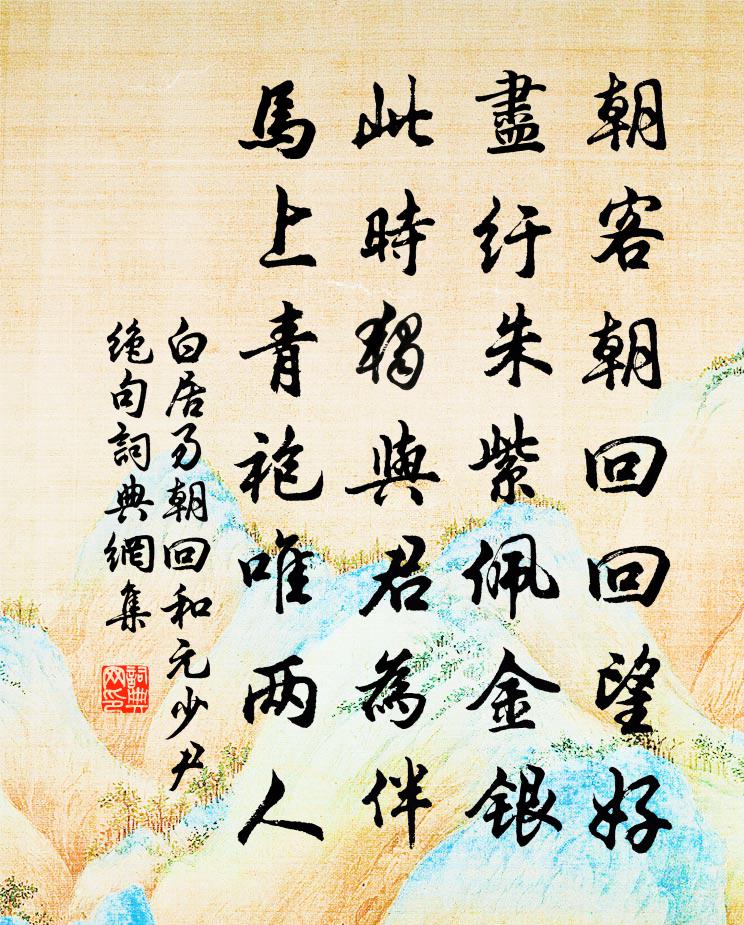 朝客朝回回望好
盡紆朱紫佩金銀
此時獨與君為伴
馬上青袍唯两人
白居易朝回和元少尹
絶句詞典網集
詞典网印